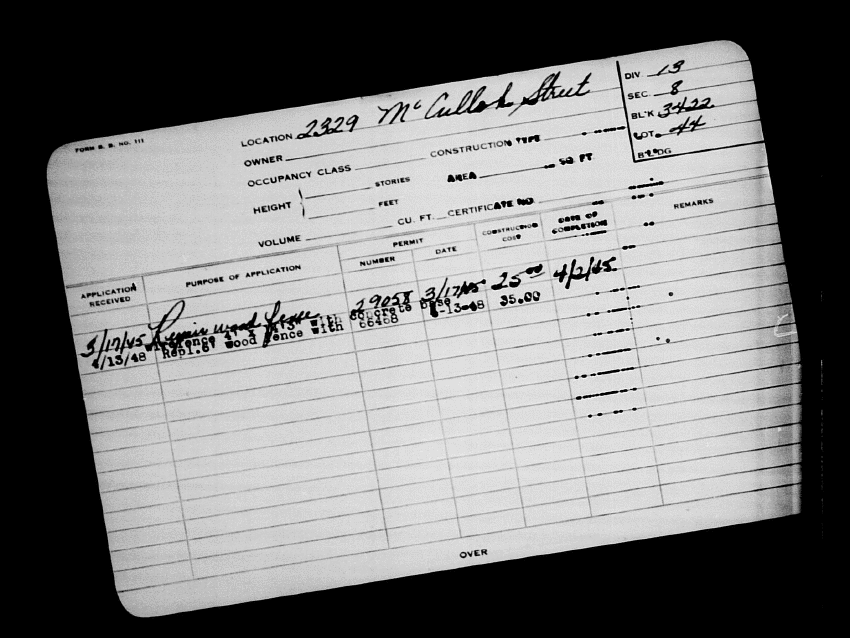 FORM B. B. NO. 111
LOCATION 2329 McCulloh Street
OWNER
OCCUPANCY CLASS CONSTRUCTION TYPE
HEIGHT STORIES AREA SQ FT
FEET
VOLUME CU. FT. CERTIFICATE NO.
DIV. 13
SEC. 8
BL'K 3422
LOT. 44
BLDG
APPLICATION RECEIVED PURPOSE OF APPLICATION PERMIT NUMBER DATE CONSTRUCTION COST DATE OF COMPLETION REMARKS
3/17/45 Repair wood fence 29058 3/17/45 25 00 4/2/45
/13/48 Repl.6' wood fence with 66468 -13-48 35.00
wire fence 4' x with concrete base
OVER